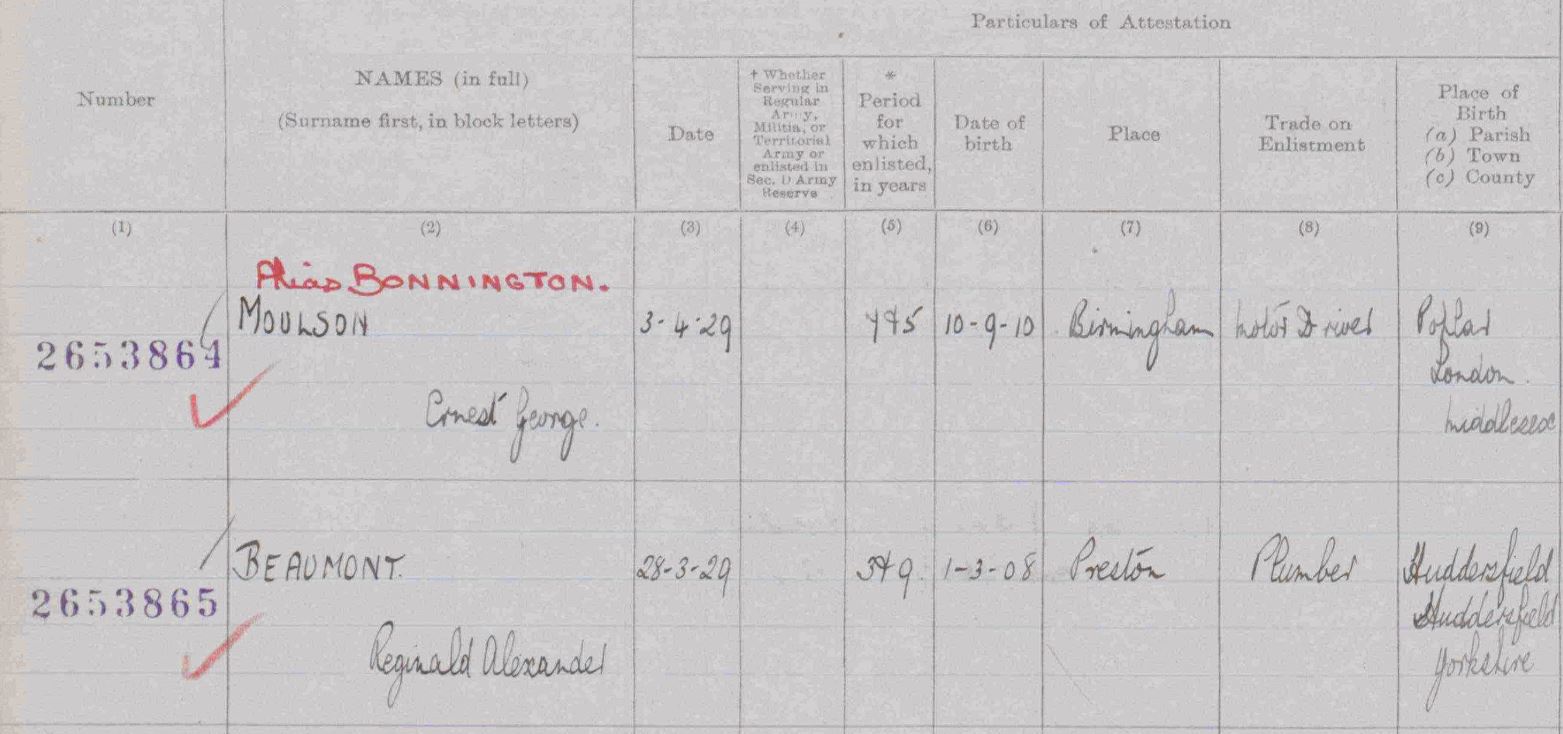 Particulars of Attestation
Number
NAMES (in full)
(Surname first, in block letters)
Date
† Whether
Serving in
Regular
Army,
Militia, or
Territorial
Army or
enlisted in
Sec. D Army
Reserve
*
Period
for
which
enlisted,
in years
Date of
birth
Place
Trade on
Enlistment
Place of
Birth
(a) Parish
(b) Town
(c) County
(1) (2) (3) (4) (5) (6) (7) (8) (9)
Alias BONNINGTON.
2653864 MOULSON 3-4-29 7&5 10-9-10 Birmingham Motor Driver Poplar
London.
Ernest George. Middlesex
2653865 BEAUMONT. 28-3-29 3&9. 1-3-08 Preston Plumber Huddersfield
Huddersfield
Reginald Alexander Yorkshire